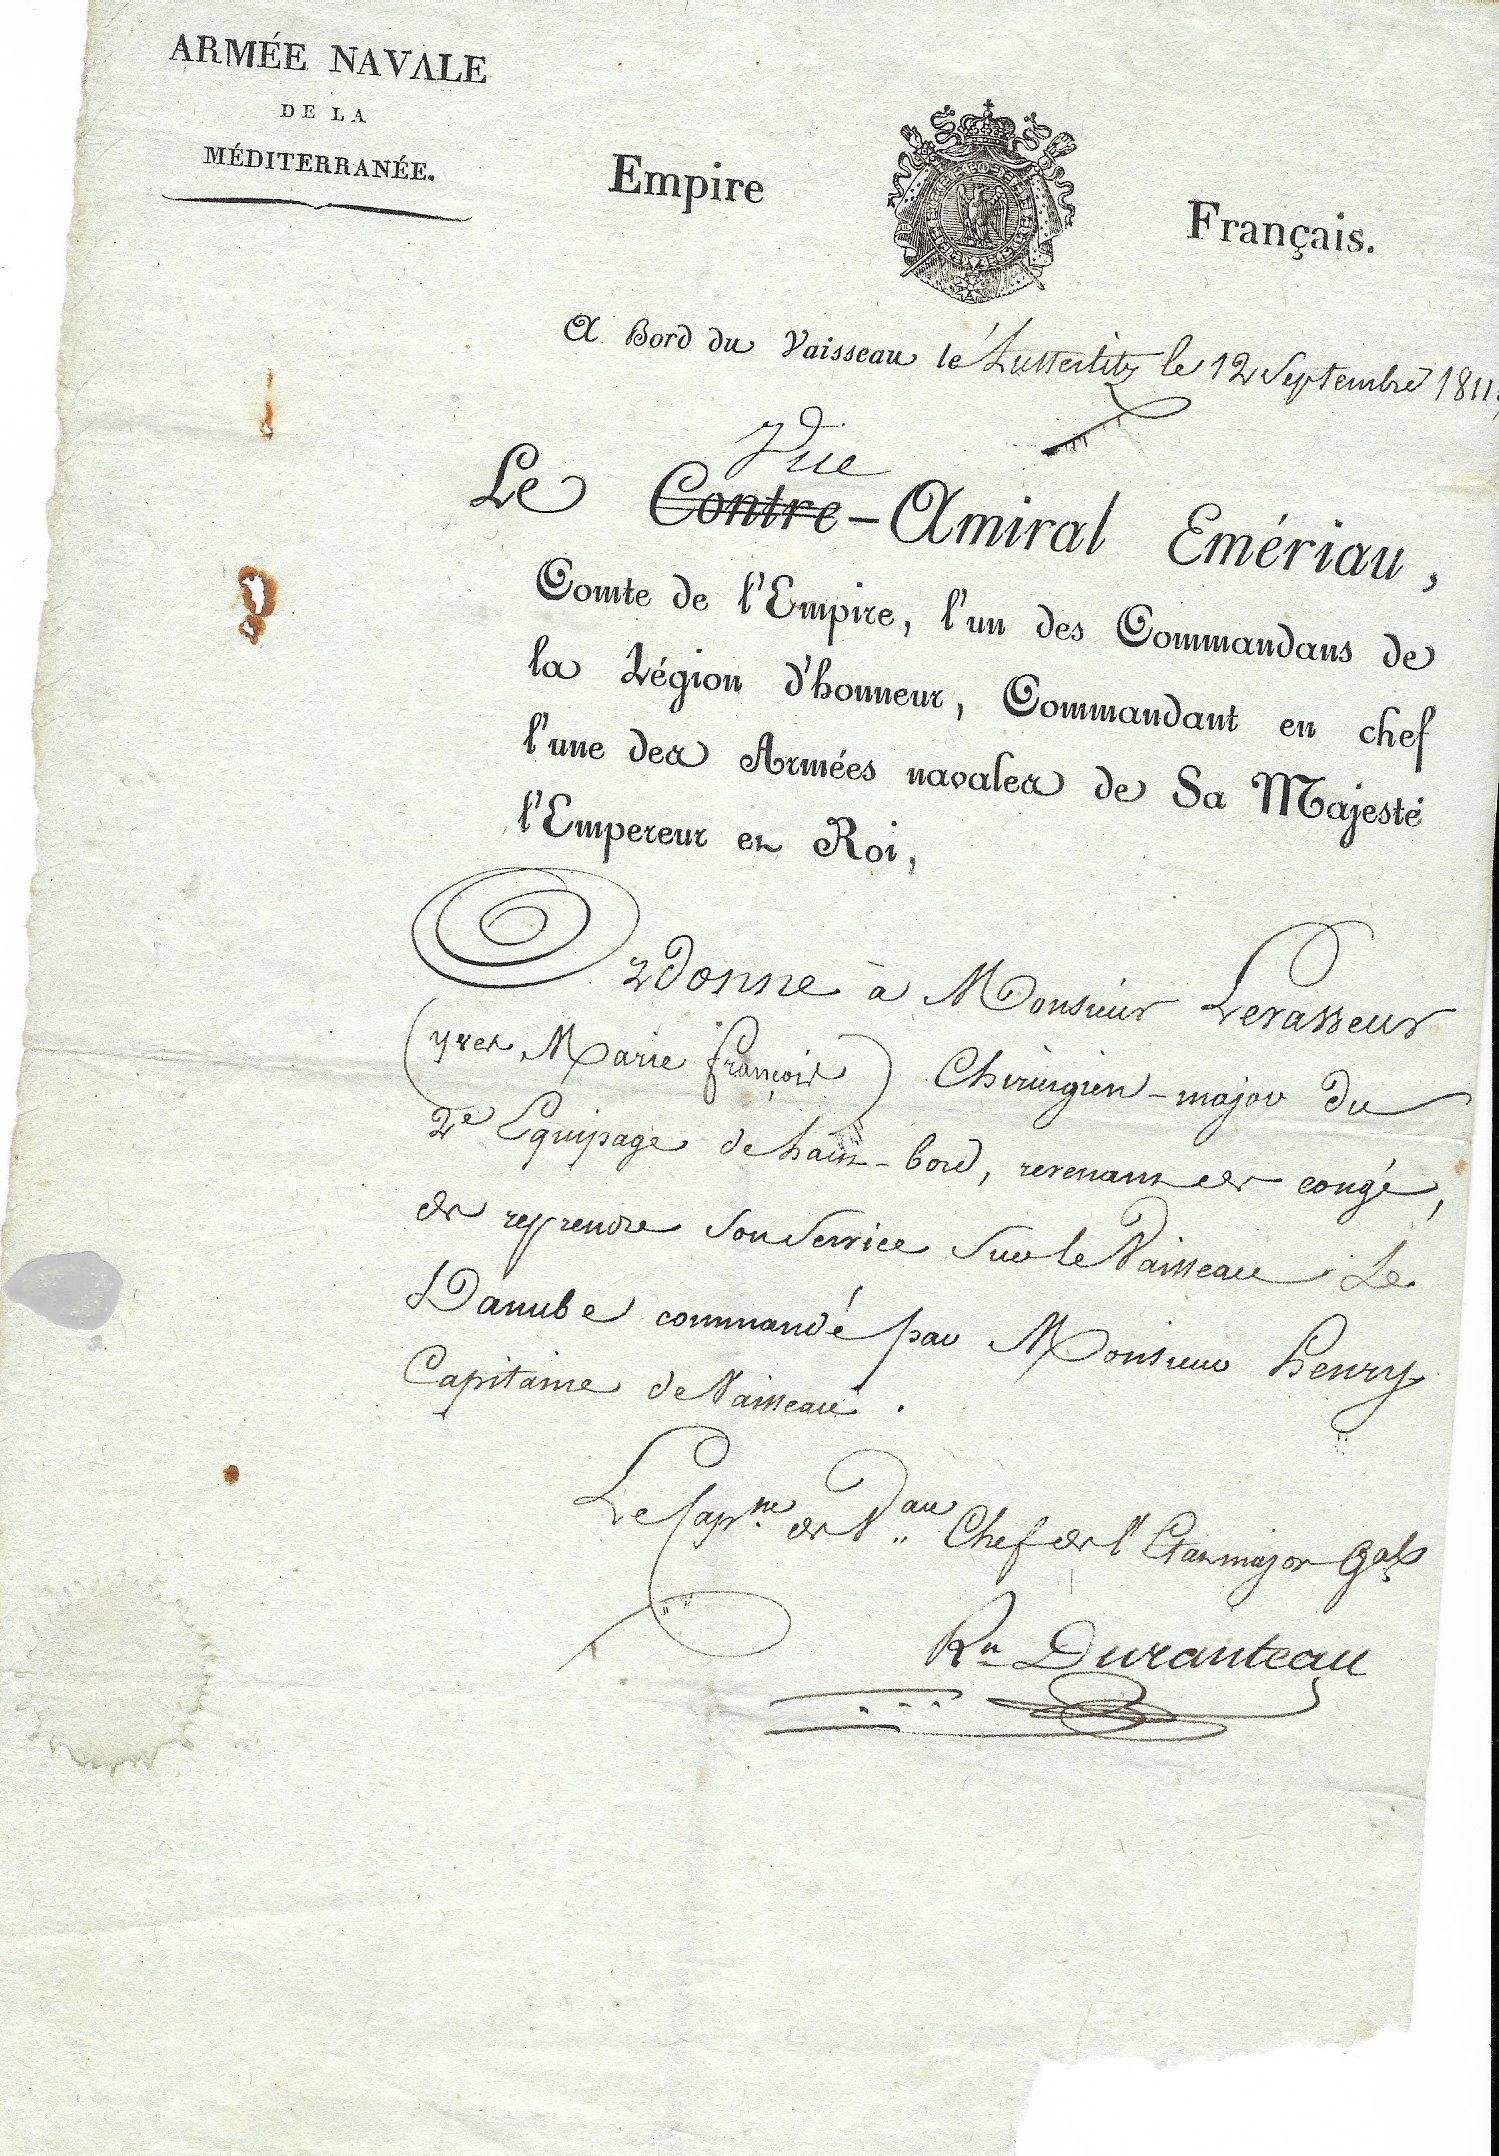 ARMÉE NAVALE
DE LA
MÉDITERRANÉE.
Empire Français.
A Bord du Vaisseau le L'Austerlitz le 12 Septembre 1811.
Vice
Le Contre-Amiral Emériau,
Comte de l'Empire, l'un des Commandans de
la Légion d'honneur, Commandant en chef
l'une des Armées navales de Sa Majesté
l'Empereur et Roi,
Ordonne à Monsieur Levasseur
(yves Marie françois) Chirurgien-major du
2e Equipage de haut-bord, revenant de congé,
de reprendre son Service Sur le Vaisseau Le
Danube commandé par Monsieur henry
Capitaine de Vaisseau.
Le Capne de Vau Chef de l'Etat major Gal
Rn Duranteau